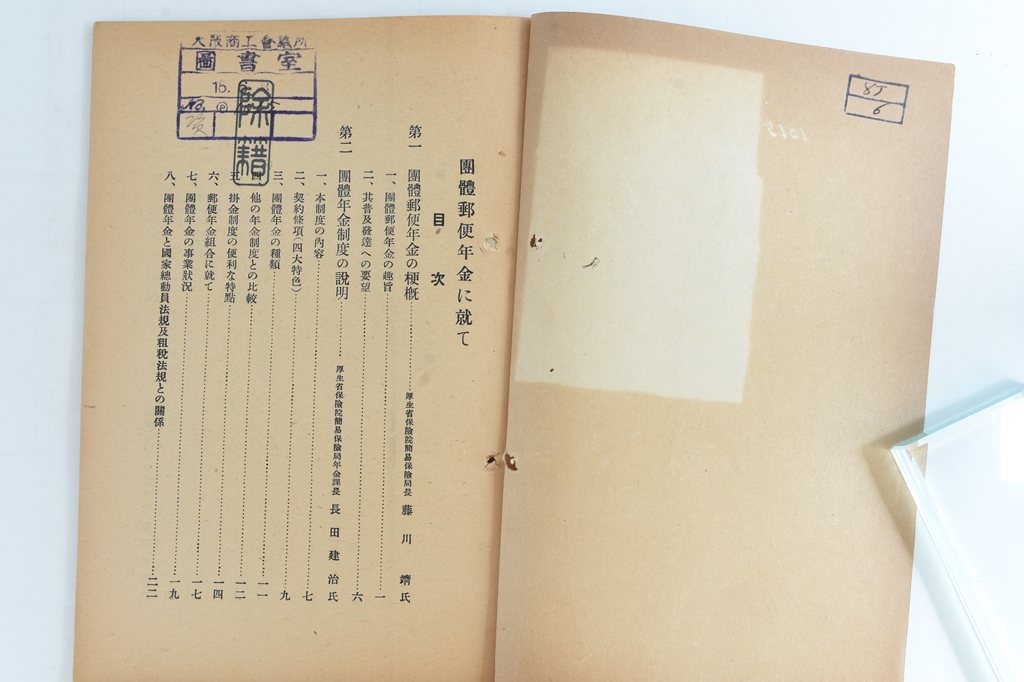 85
6
團體郵便年金に就て
目次
第一 團體郵便年金の梗概 厚生省保險院簡易保險局長 藤川靖氏
一、團體郵便年金の趣旨 一
二、其普及發達への要望 六
第二 團體年金制度の說明 厚生省保險院簡易保險局年金課長 長田建治氏
一、本制度の內容 七
二、契約條項(四大特色) 九
三、團體年金の種類 一一
四、他の年金制度との比較 一二
五、掛金制度の便利な特點 一四
六、郵便年金組合に就て 一七
七、團體年金の事業狀況 一九
八、團體年金と國家總動員法規及租稅法規との關係 二二
大阪商工會議所
圖書室
16.
除籍